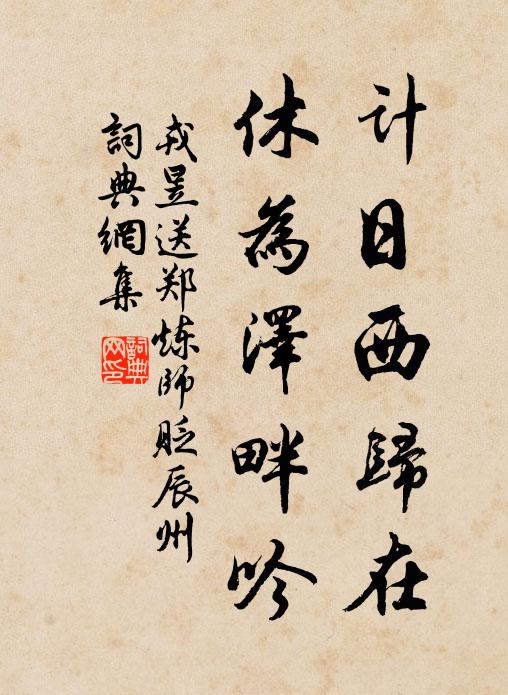 计日西歸在
休為澤畔吟
戎昱送郑炼师贬辰州
詞典網集
詞典網印